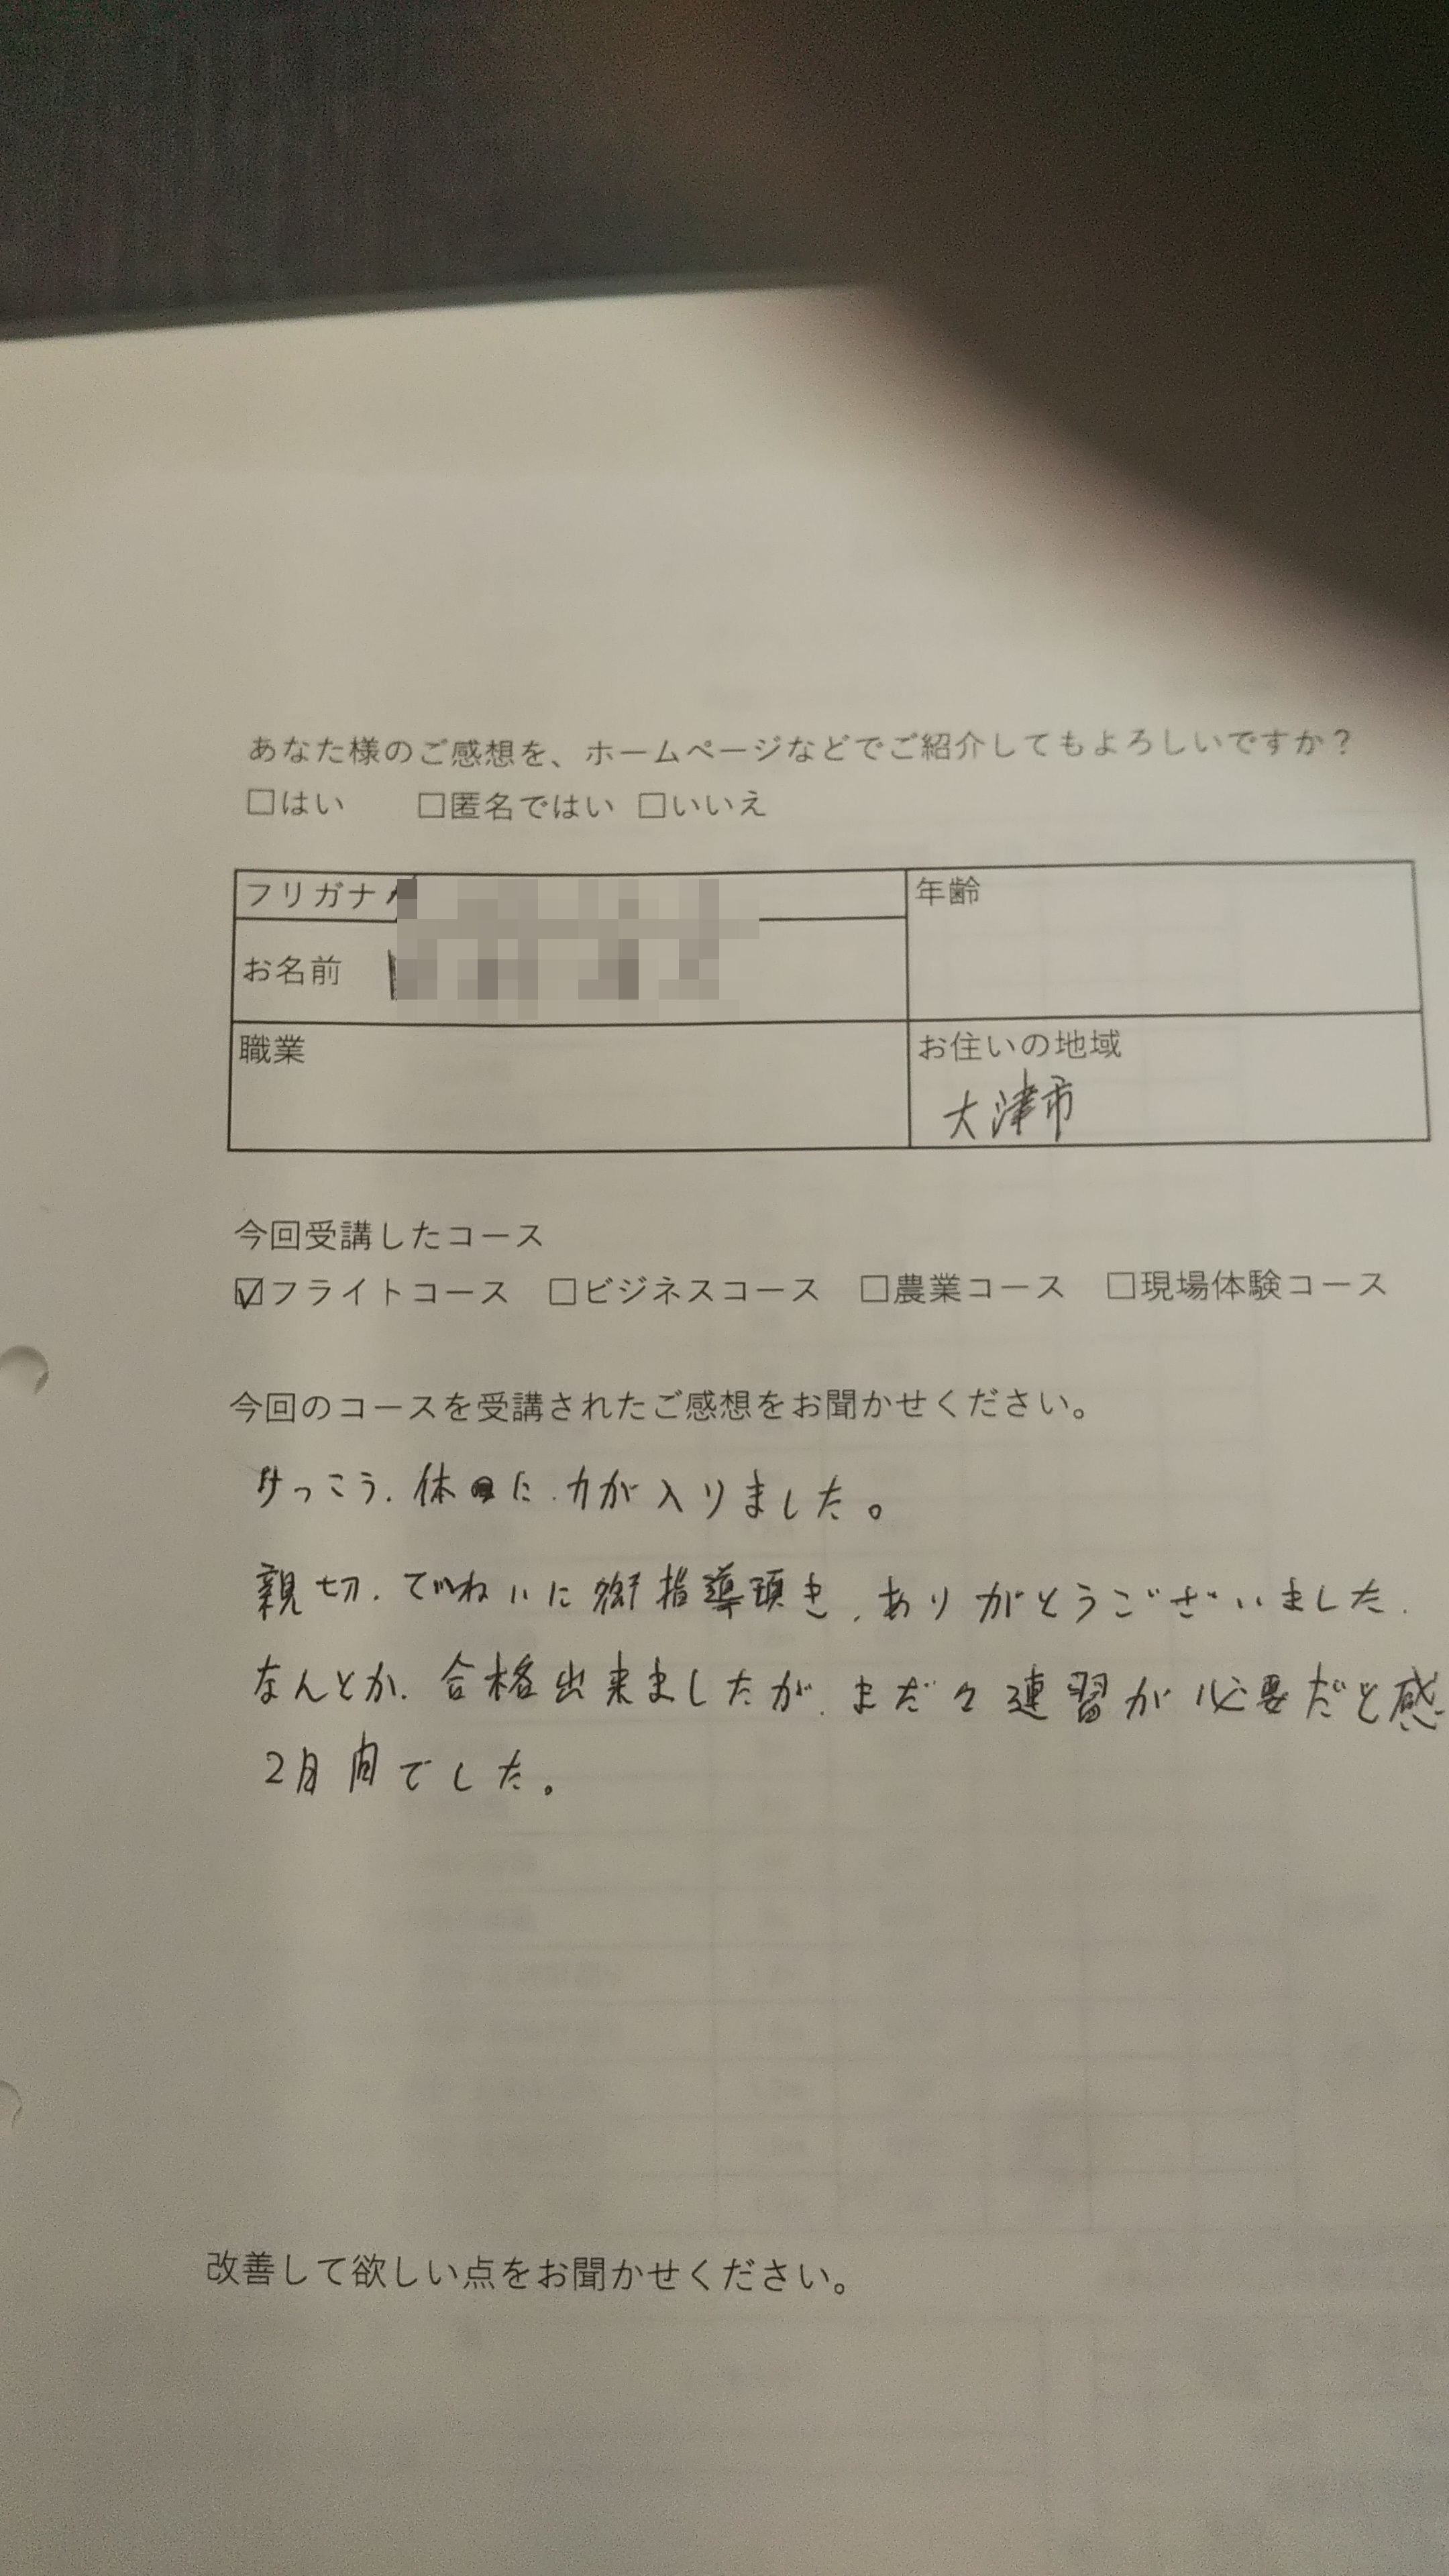 あなた様のご感想を、ホームページなどでご紹介してもよろしいですか？
□はい □匿名ではい □いいえ
フリガナ
年齢
お名前
職業
お住いの地域
大津市
今回受講したコース
☑フライトコース □ビジネスコース □農業コース □現場体験コース
今回のコースを受講されたご感想をお聞かせください。
けっこう、体に力が入りました。
親切、ていねいに御指導頂き、ありがとうございました。
なんとか、合格出来ましたが、まだ々連習が必要だと感
2日間でした。
改善して欲しい点をお聞かせください。